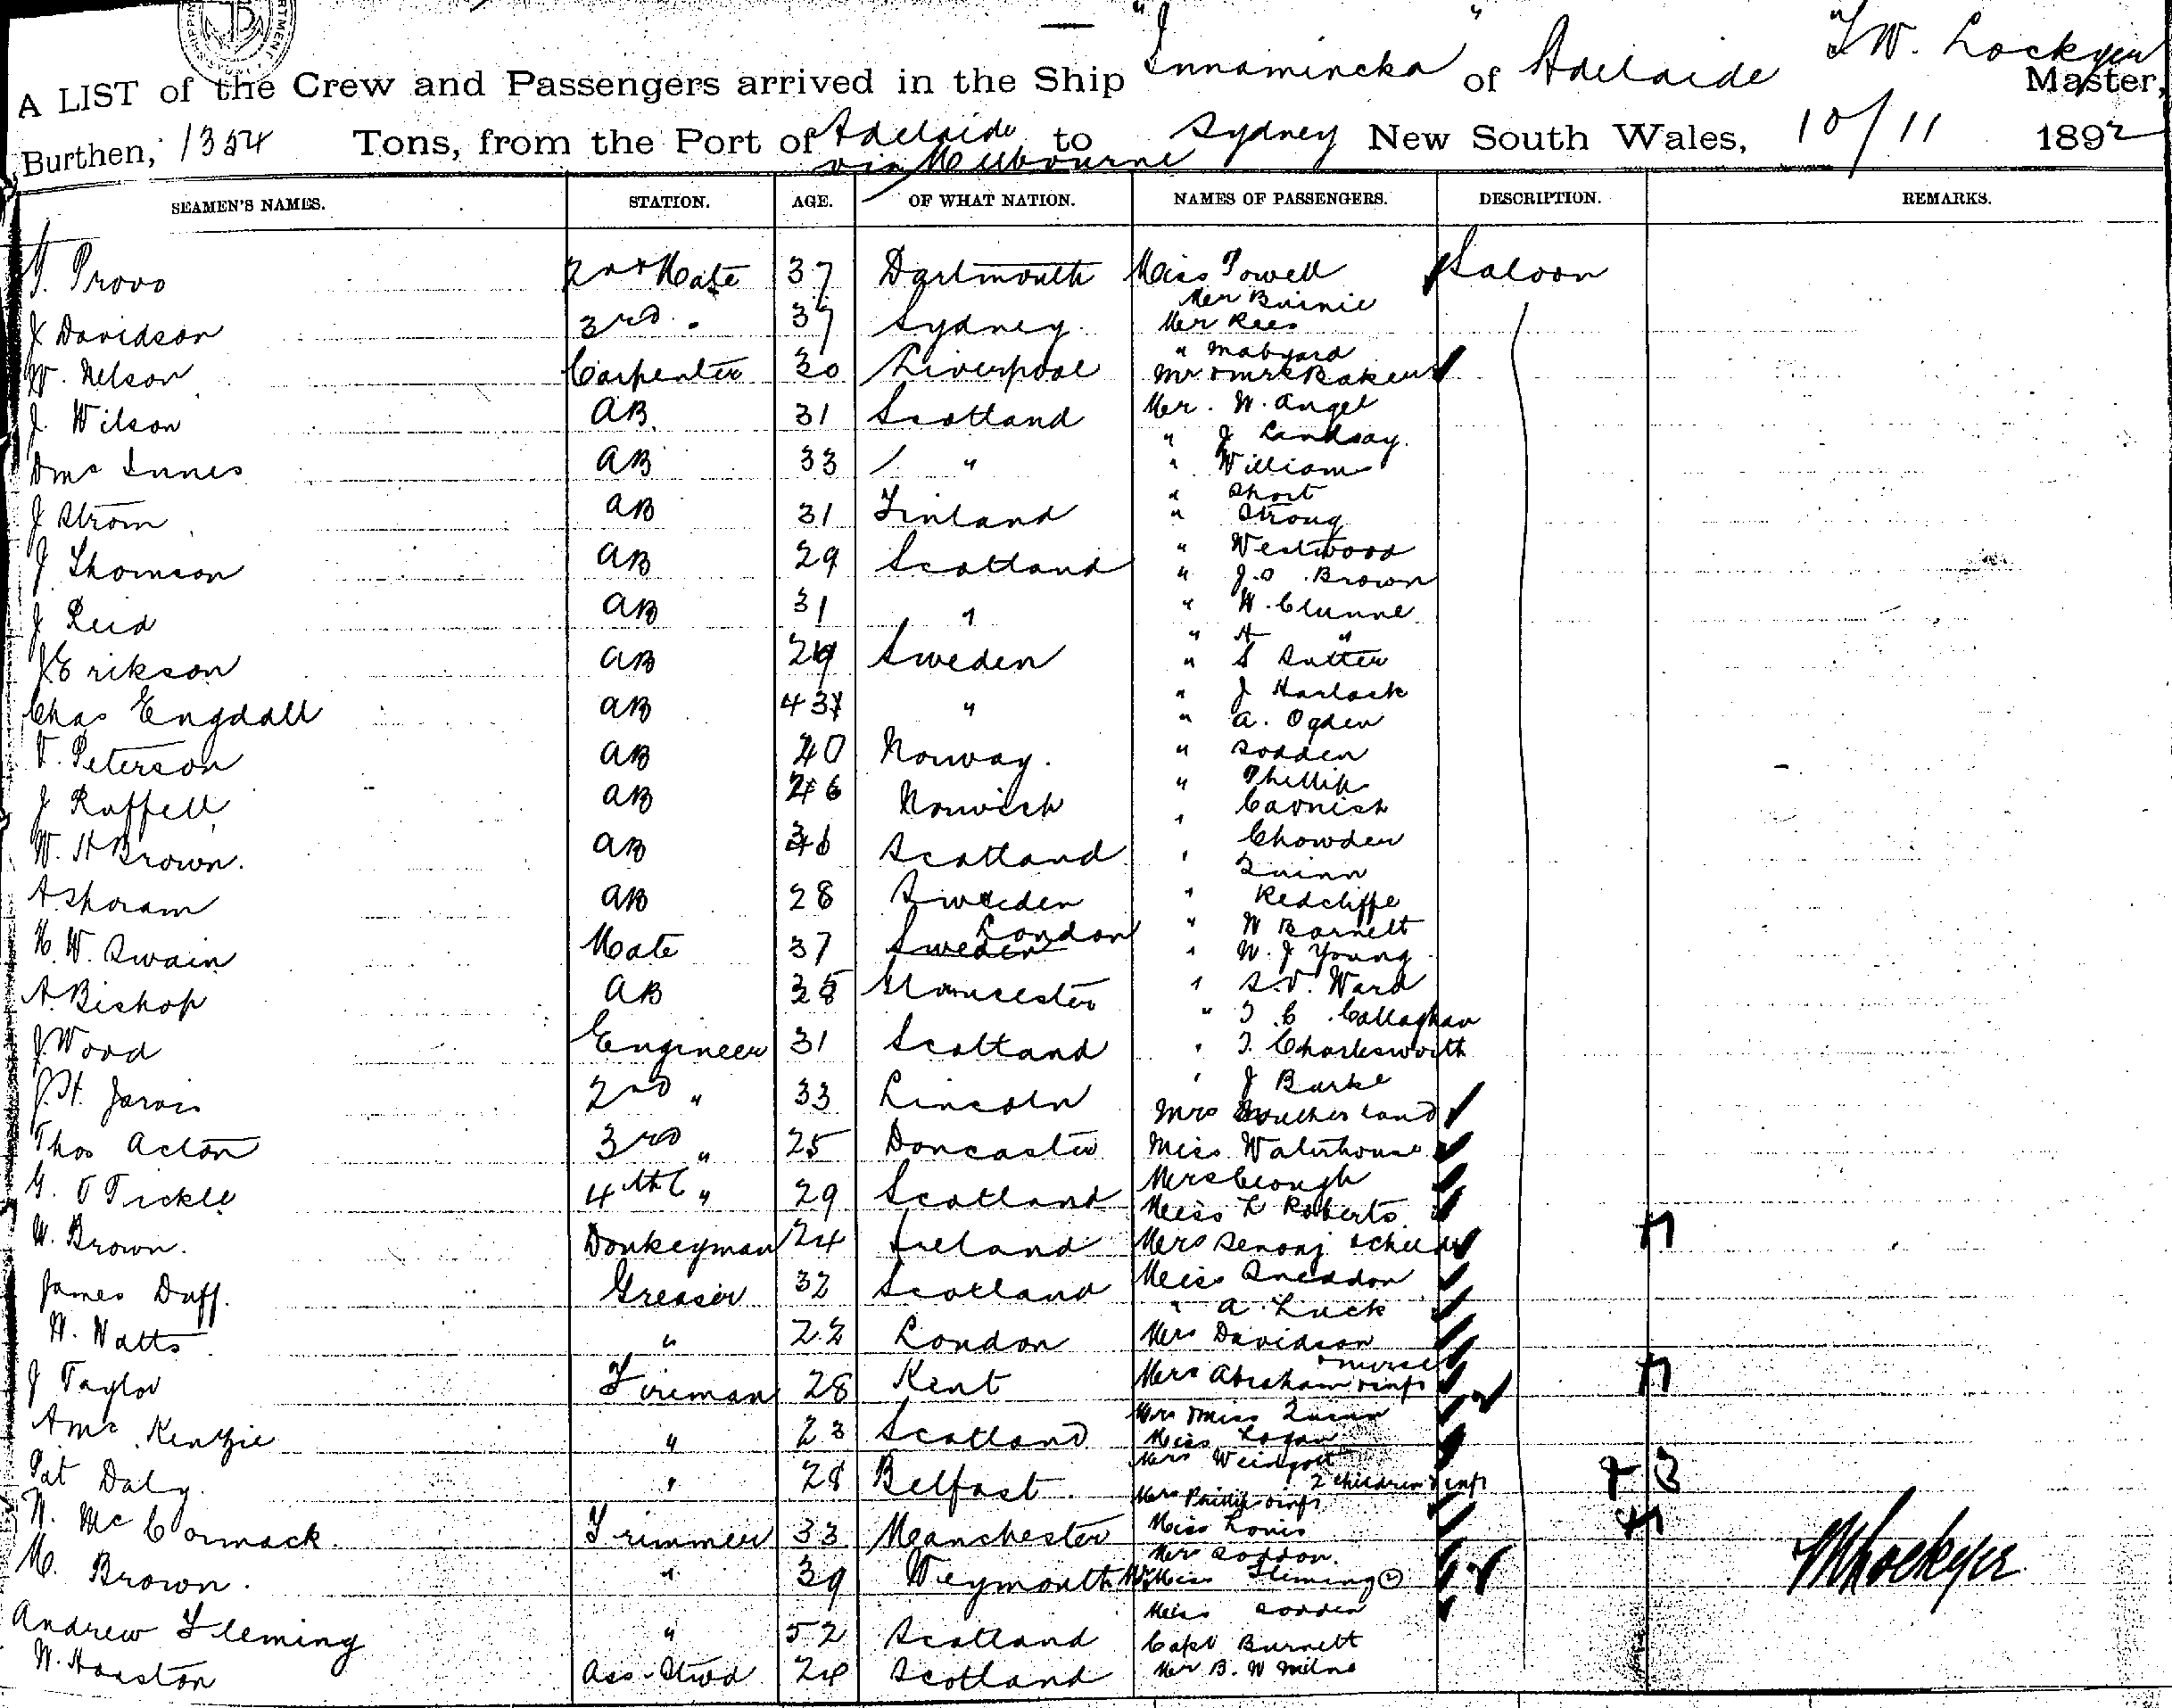 "Innamincka" of Adelaide T W. Lockyer
A LIST of the Crew and Passengers arrived in the Ship of Master,
Burthen, 1354 Tons, from the Port of Adelaide to Sydney New South Wales, 10/11 1892
via Melbourne
SEAMEN'S NAMES. STATION. AGE. OF WHAT NATION. NAMES OF PASSENGERS. DESCRIPTION. REMARKS.
Provo 2nd Mate 37 Dartmouth Miss Powell Saloon
Mr Burnie
J Davidson 3rd " 37 Sydney Mr Rees
" Mabyard
W. Nelson Carpenter 30 Liverpool Mr & Mrs Baker
J. Wilson AB 31 Scotland Mr. W. Angel
" J Lindsay.
D Mc Innes AB 33 " " William
" Short
J Strom AB 31 Finland " Strong
" Westwood
J Thomson AB 29 Scotland " J.O. Brown
J Reid AB 31 " " W. Clunne
" A "
J Erikson AB 29 Sweden " S Sutter
" J Harlock
Chas Engdall AB " " A. Ogden
V. Peterson AB 40 Norway. " Sodden
" Phillip
J Ruffell AB Norwich " Cavnish
W. H Brown. AB Scotland " Chowden
" Quinn
A. Shoram AB 28 Sweden " Redcliffe
London " W Barnett
H. W. Swain Mate 37 Sweden " W. J Young
A. Bishop AB Gloucester " S.V. Ward
" T. C. Callaghan
J. Wood Engineer 31 Scotland " T. Charlesworth
" J Burke
J. H. Jarvis 2nd " 33 Lincoln Mrs Southerland
Thos Acton 3rd " 25 Doncaster Miss Waterhouse
Mrs Clough
G. V Tickle 4th " 29 Scotland Miss L Roberts.
W. Brown. Donkeyman 24 Ireland Mrs & child
James Duff. Greaser 32 Scotland Miss Sneddon
" A. Luck
W. Watts " 22 London Mrs Davidson
& nurse
J Taylor Fireman 28 Kent Mrs Abraham & inft
Mrs & Miss Quinn
A Mc Kenzie " 23 Scotland Miss Logan
Mrs Weingott
Pat Daly. " 28 Belfast. 2 children & inft
Mrs Phillip & inft
N. Mc Cormack. Trimmer 33 Manchester Miss Louis
Mrs Soddon.
M. Brown. " 39 Weymouth Miss Fleming (2)
Miss Sodden
Andrew Fleming " 52 Scotland Capt Burnett
W. Houston Ass. Stwd 24 Scotland Mr B. W Milne